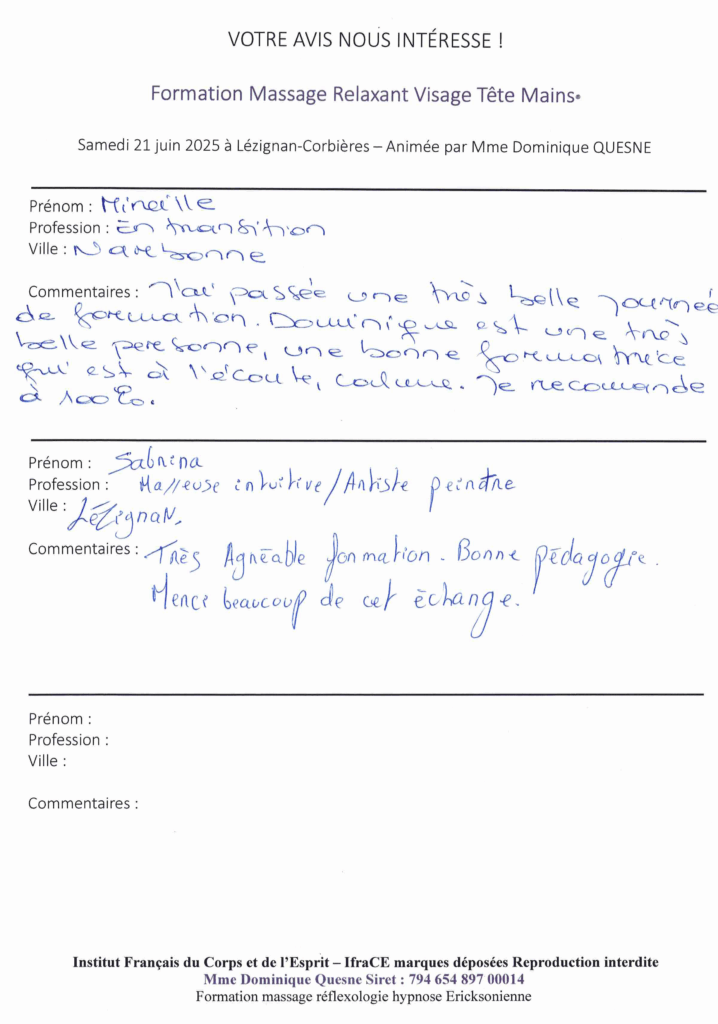 VOTRE AVIS NOUS INTÉRESSE !
Formation Massage Relaxant Visage Tête Mains•
Samedi 21 juin 2025 à Lézignan-Corbières – Animée par Mme Dominique QUESNE
Prénom : Mireille
Profession : En transition
Ville : Narbonne
Commentaires : J'ai passée une très belle journée
de formation. Dominique est une très
belle personne, une bonne formatrice
qui est à l'écoute, calme. Je recomande
à 100%.
Prénom : Sabrina
Profession : Masseuse intuitive/Artiste peintre
Ville : Lézignan,
Commentaires : Très Agréable formation. Bonne pédagogie.
Merci beaucoup de cet échange.
Prénom :
Profession :
Ville :
Commentaires :
Institut Français du Corps et de l'Esprit – IfraCE marques déposées Reproduction interdite
Mme Dominique Quesne Siret : 794 654 897 00014
Formation massage réflexologie hypnose Ericksonienne